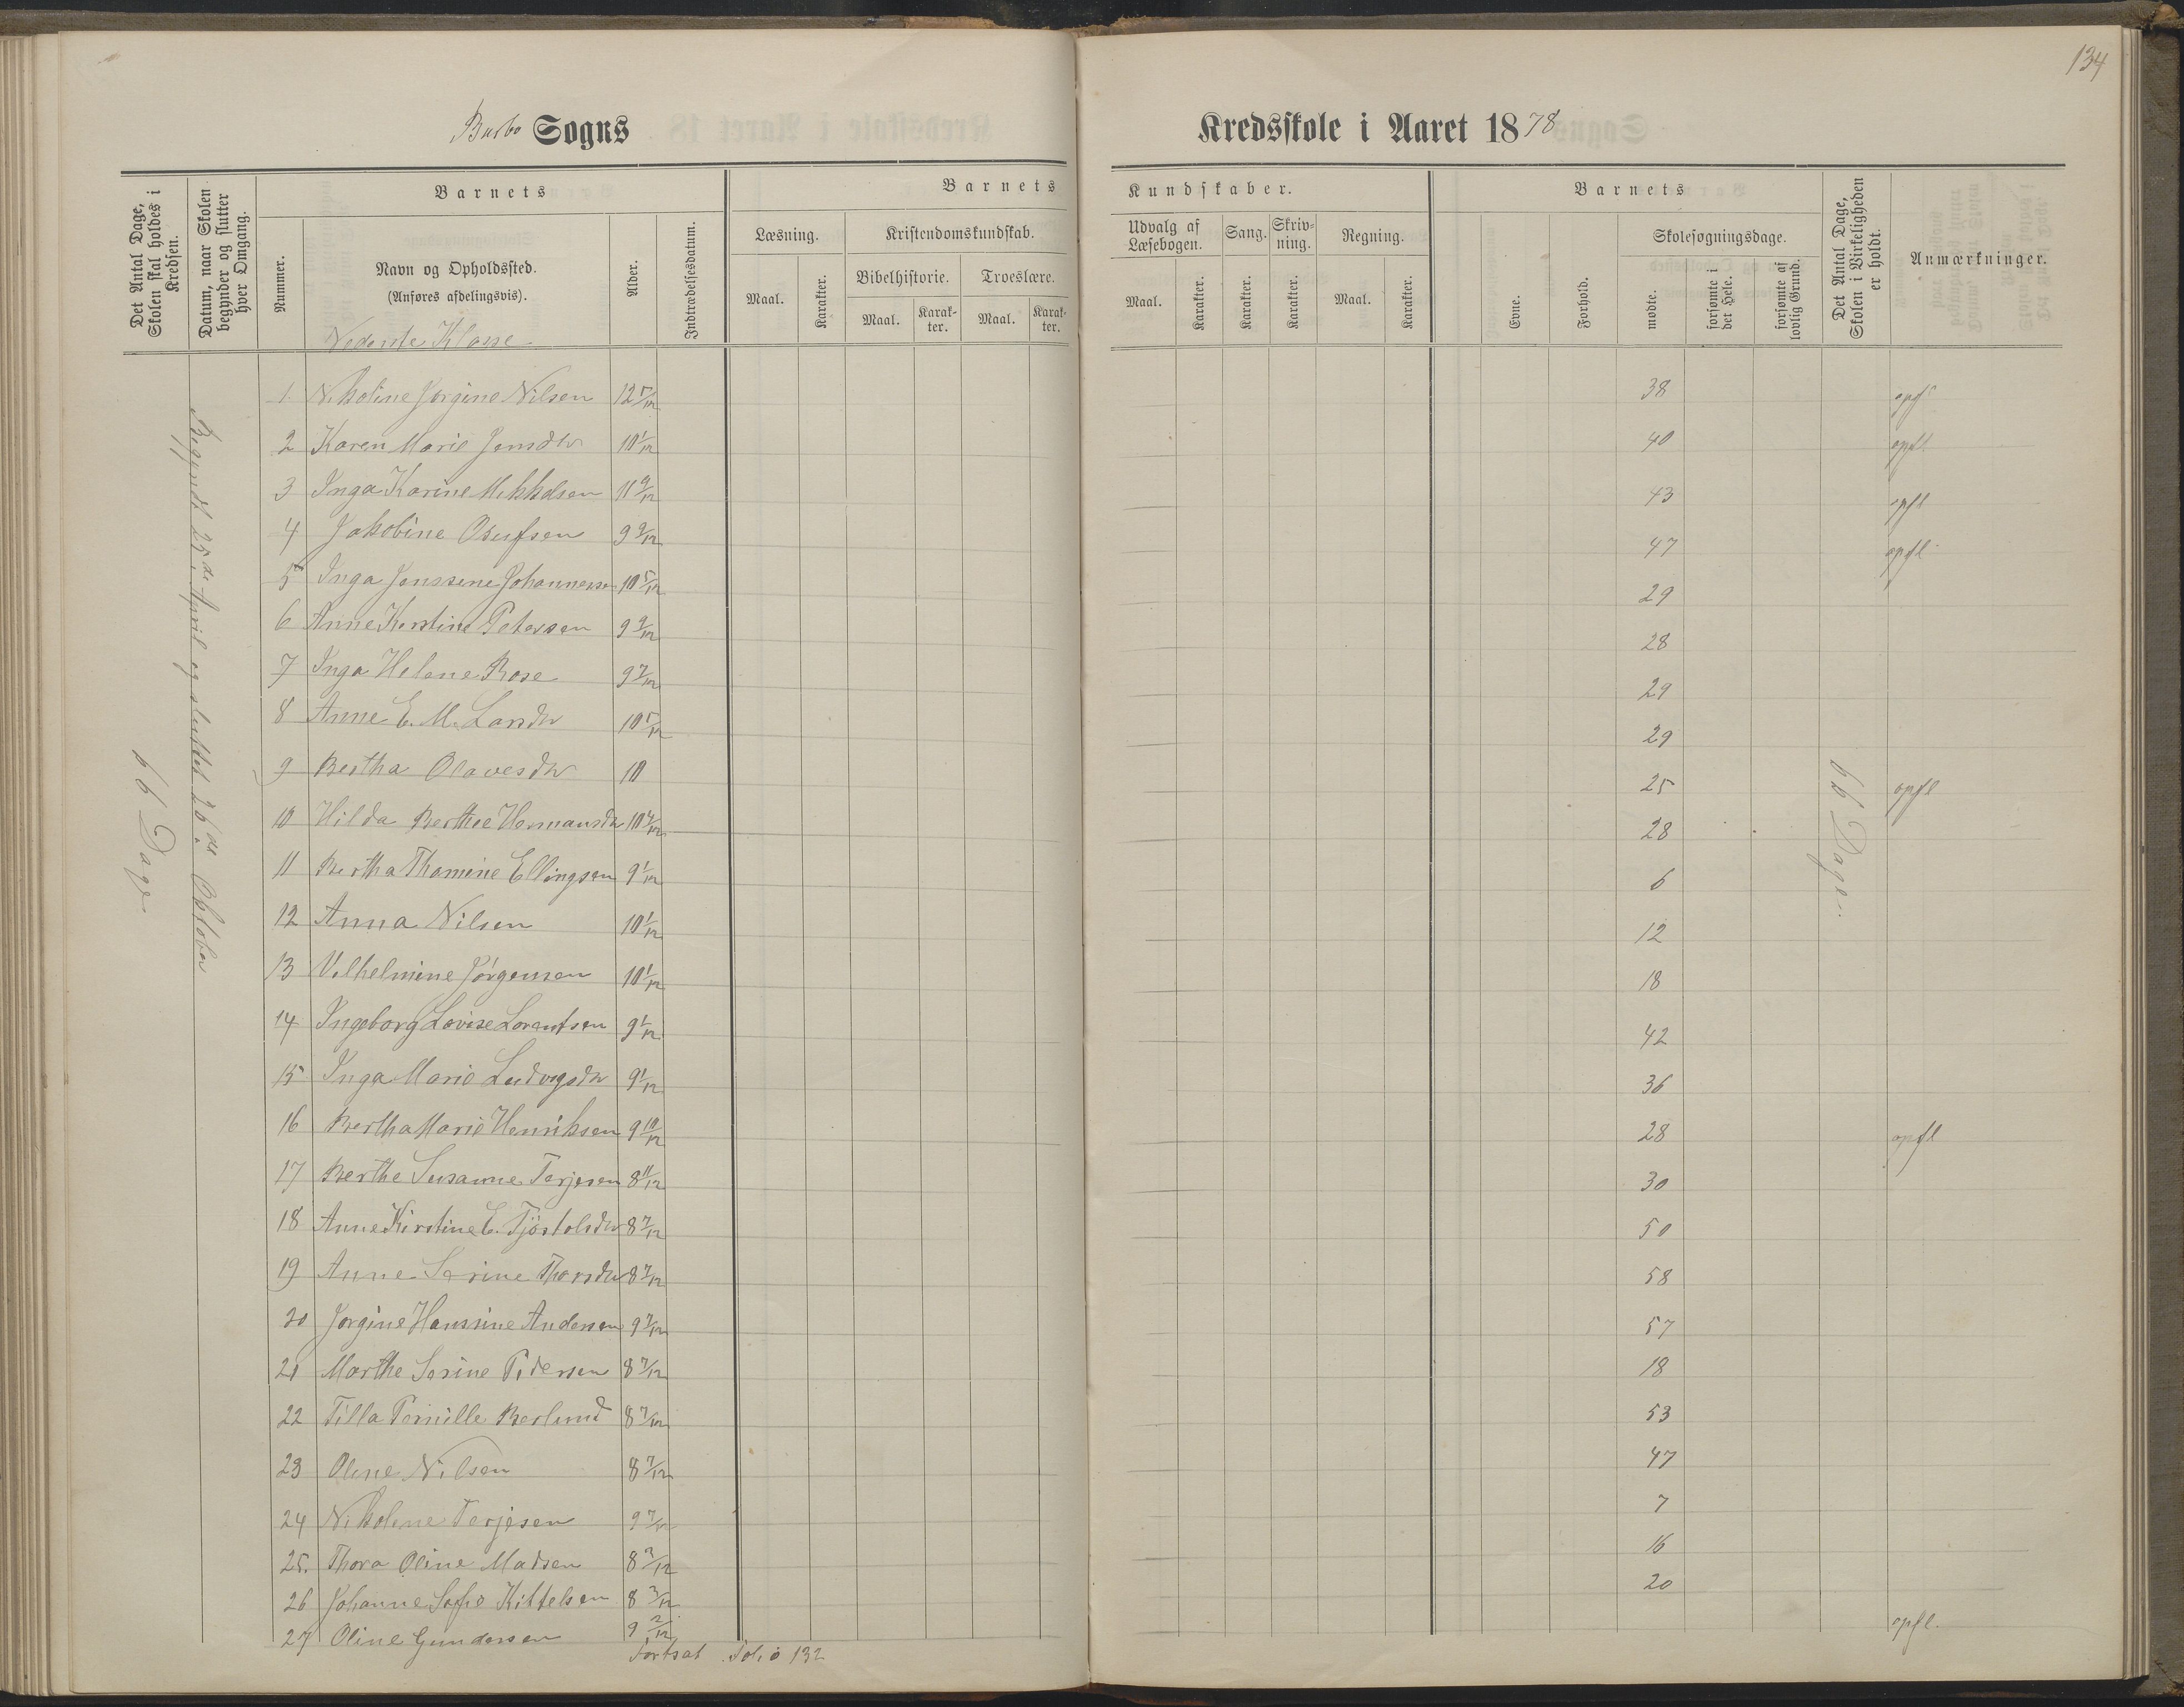 134
Barbo Sogns Kredsskole i Aaret 1878
Det Antal Dage, Skolen skal holdes i Kredsen.
Datum, naar Skolen begynder og slutter hver Omgang.
Nummer.
Barnets
Navn og Opholdssted.
(Anføres afdelingsvis).
Nederste Klasse
Alder.
Indtrædelsesdatum.
Barnets Kundskaber.
Læsning.
Maal.
Karakter.
Kristendomskundskab.
Bibelhistorie.
Maal.
Karak-
ter.
Troeslære.
Maal.
Karak-
ter.
Udvalg af
Læsebogen.
Maal.
Karakter.
Sang.
Karakter.
Skriv-
ning.
Karakter.
Regning.
Maal.
Karakter.
Barnets
Evne.
Forhold.
Skolesøgningsdage.
mødte.
forsømte i
det Hele.
forsømte af
lovlig Grund.
Det Antal Dage,
Skolen i Virkeligheden
er holdt.
Anmærkninger.
66 Dage.
Begyndt 25de April og sluttet 26de Oktober
66 Dage.
1 Nikoline Jørgine Nilsen 12 5/12 38 opfl
2 Karen Marie Jensdtr 10 1/12 40 opfl
3 Inga Karine Mikkelsen 11 9/12 43 opfl
4 Jakobine Osufsen 9 9/12 47 opfl
5 Inga Jenssine Johannessen 10 5/12 29
6 Anne Kirstine Petersen 9 9/12 28
7 Inga Helene Rose 9 7/12 29
8 Anne E. M. Larsdtr 10 5/12 29
9 Bertha Olavesdtr 10 25 opfl
10 Hilda Berthie Hermansdtr 10 4/12 28
11 Bertha Thomine Ellingsen 9 1/12 6
12 Anna Nilsen 10 1/12 12
13 Vilhelmine Jörgensen 10 1/12 18
14 Ingeborg Lovise Lorentsen 9 1/12 42
15 Inga Marie Ludvigsdtr 9 1/12 36
16 Bertha Marie Henriksen 9 10/12 28 opfl
17 Berthe Susanne Terjesen 8 11/12 30
18 Anne Kirstine E. Tjöstolsdtr 8 7/12 50
19 Anne Serine Thorsdtr 8 7/12 58
20 Jørgine Hanssine Andersen 9 7/12 57
21 Marthe Serine Pedersen 8 7/12 18
22 Tilla Pernille Berlund 8 7/12 53
23 Oline Nilsen 8 7/12 47
24 Nikoline Terjesen 9 7/12 7
25. Thora Oline Madsen 8 3/12 16
26 Johanne Sofie Kittelsen 8 3/12 20
27 Oline Gundersen 9 2/12 opfl.
Fortsat Folio 132